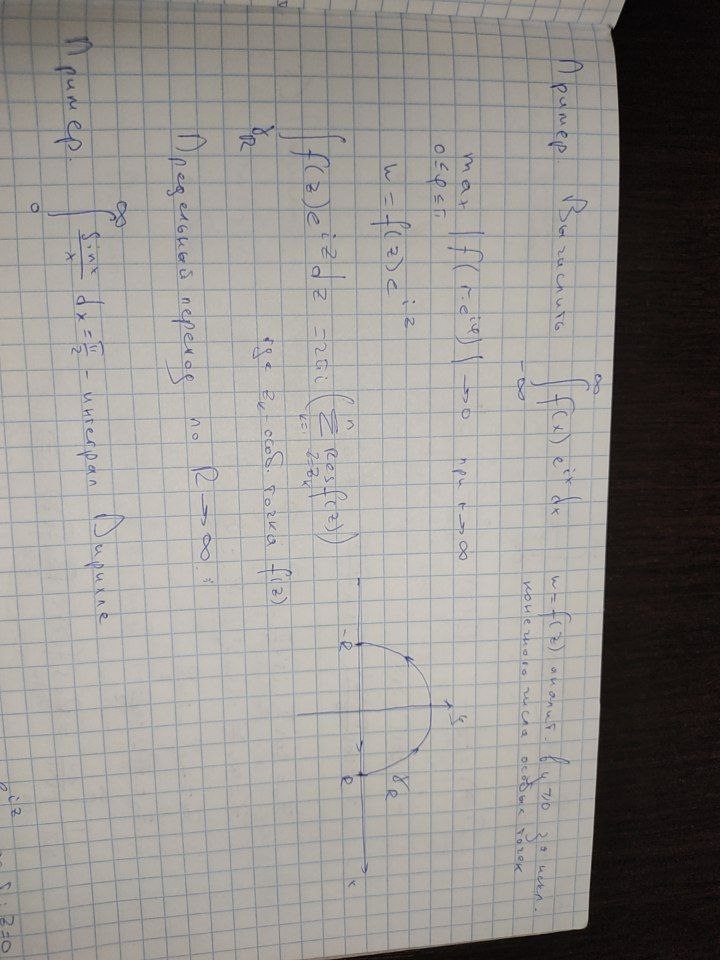 Пример Вычислить ∫_{-∞}^{∞} f(x) e^{ix} dx
w = f(z) аналит. в y>0 за искл.
конечного числа особых точек
max_{0≤φ≤π} |f(r·e^{iφ})| → 0 при r→∞
w = f(z) e^{iz}
∫_{γ_R} f(z) e^{iz} dz = 2πi (∑_{k=1}^{n} Res_{z=z_k} f(z))
где z_k - особ. точка f(z)
y
γ_R
-R
R
x
Предельный переход по R→∞.
Пример. ∫_0^∞ sin x / x dx = π/2 - интеграл Дирихле
e^{iz}
z=0